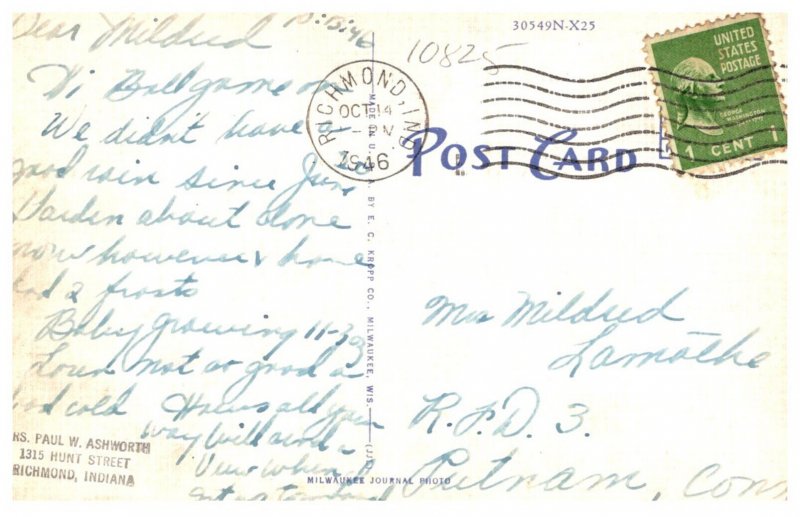 10-13-46
Dear Mildred
Hi Ball game on
We didn't have a
good rain since June
Garden about done
now however & have
had 2 frosts
Baby growing 11-3
not so good a
bad cold Hows all your
way Will send a
View when I
MRS. PAUL W. ASHWORTH
1315 HUNT STREET
RICHMOND, INDIANA
MADE IN U.S.A. BY E. C. KROPP CO., MILWAUKEE, WIS.
30549N-X25
10825
RICHMOND, IND
OCT 14
1946
UNITED
STATES
POSTAGE
GEORGE
WASHINGTON
1 CENT 1
POST CARD
Mrs Mildred
Lamothe
R.F.D. 3.
Putnam, Conn
MILWAUKEE JOURNAL PHOTO